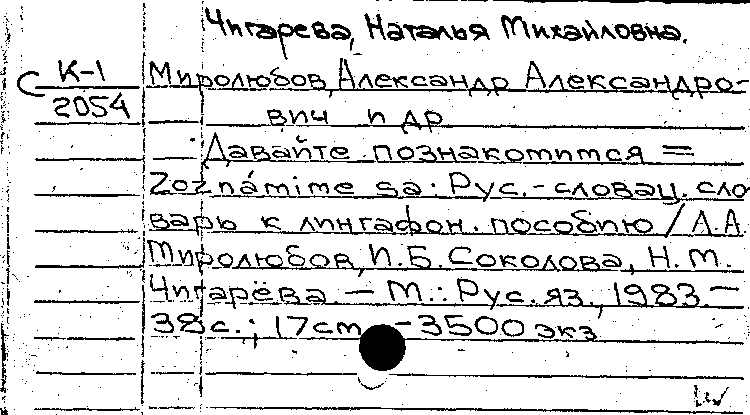 Чигарева, Наталья Михайловна.
К-1 Миролюбов, Александр Александро-
2054 вич и др
Давайте познакомимся =
Zoznámime sa: Рус.-словац. сло
варь к лингафон. пособию / А.А.
Миролюбов, И.Б. Соколова, Н.М.
Чигарёва. — М.: Рус. яз., 1983.—
38с.; 17см —3500 экз